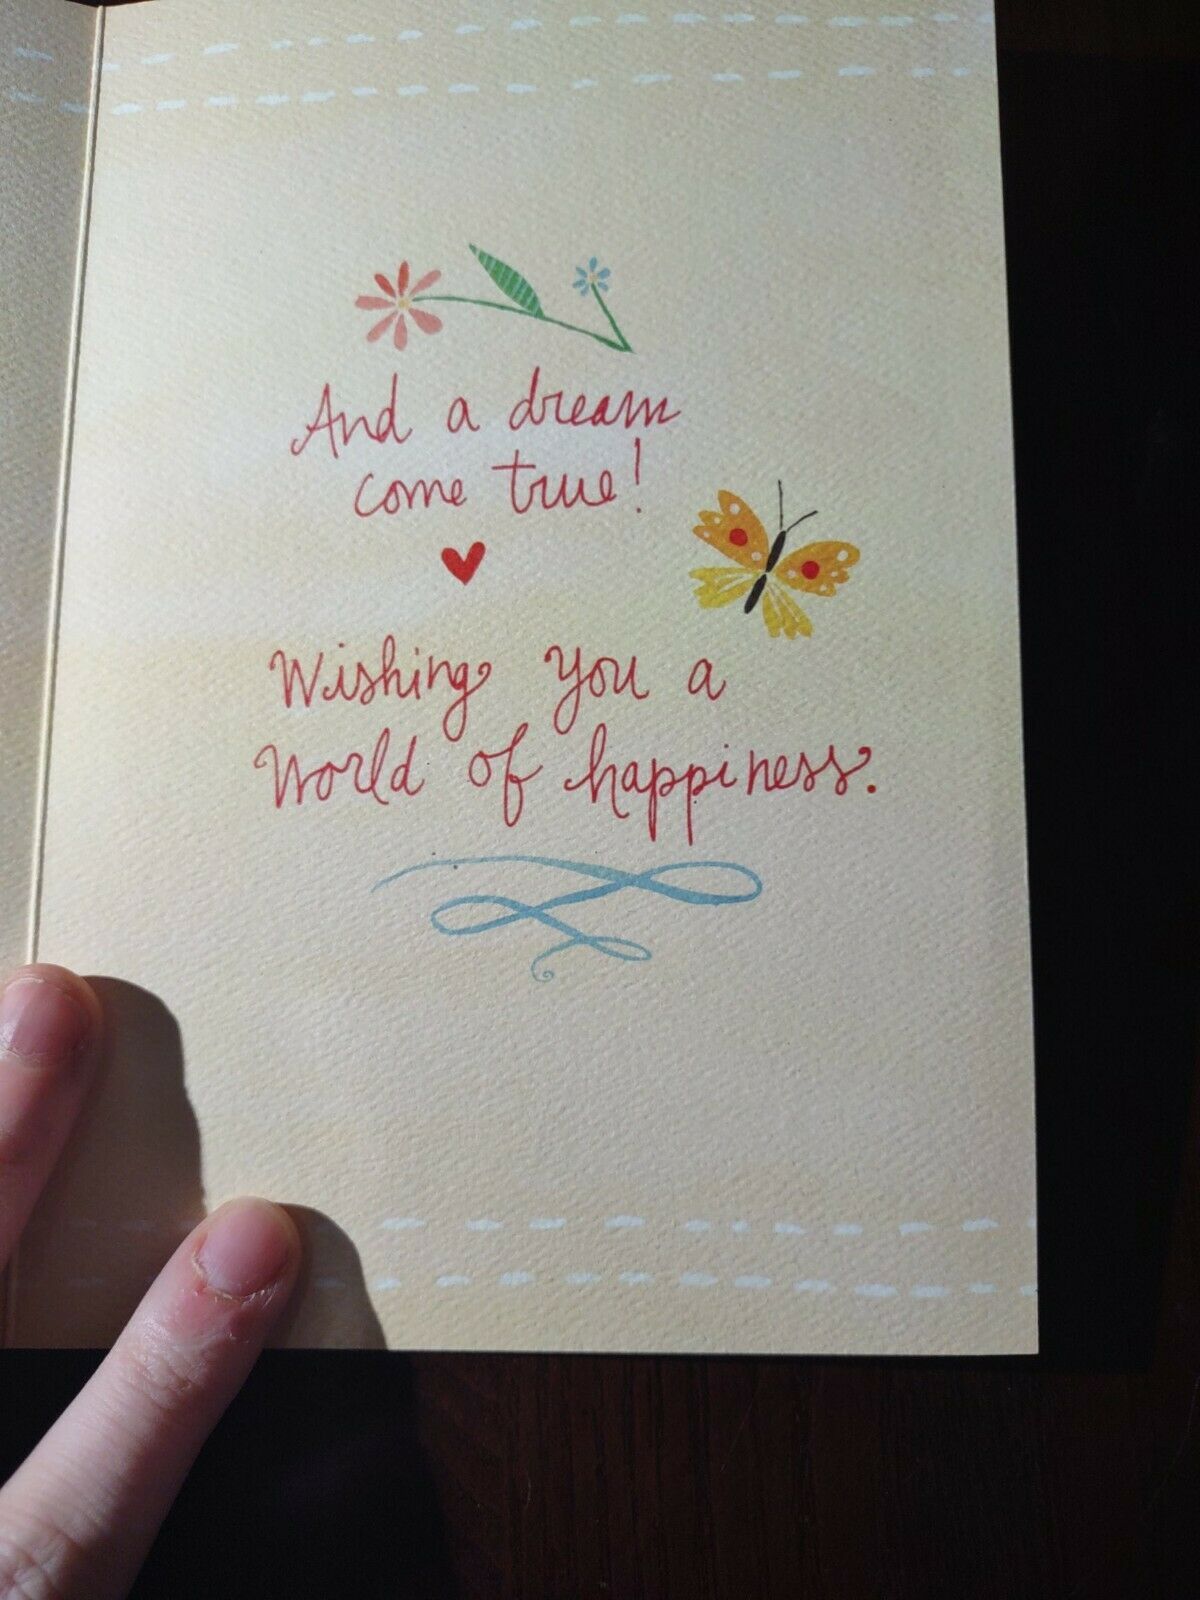 And a dream
come true!
Wishing you a
World of happiness.